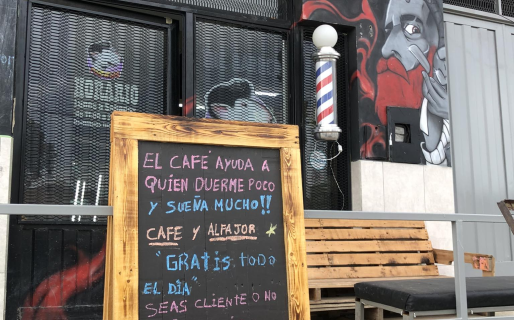 HORARIO
EL CAFE AYUDA A
QUIEN DUERME POCO
Y SUEÑA MUCHO!!
CAFE Y ALFAJOR
"GRATIS TODO
EL DIA"
SEAS CLIENTE O NO